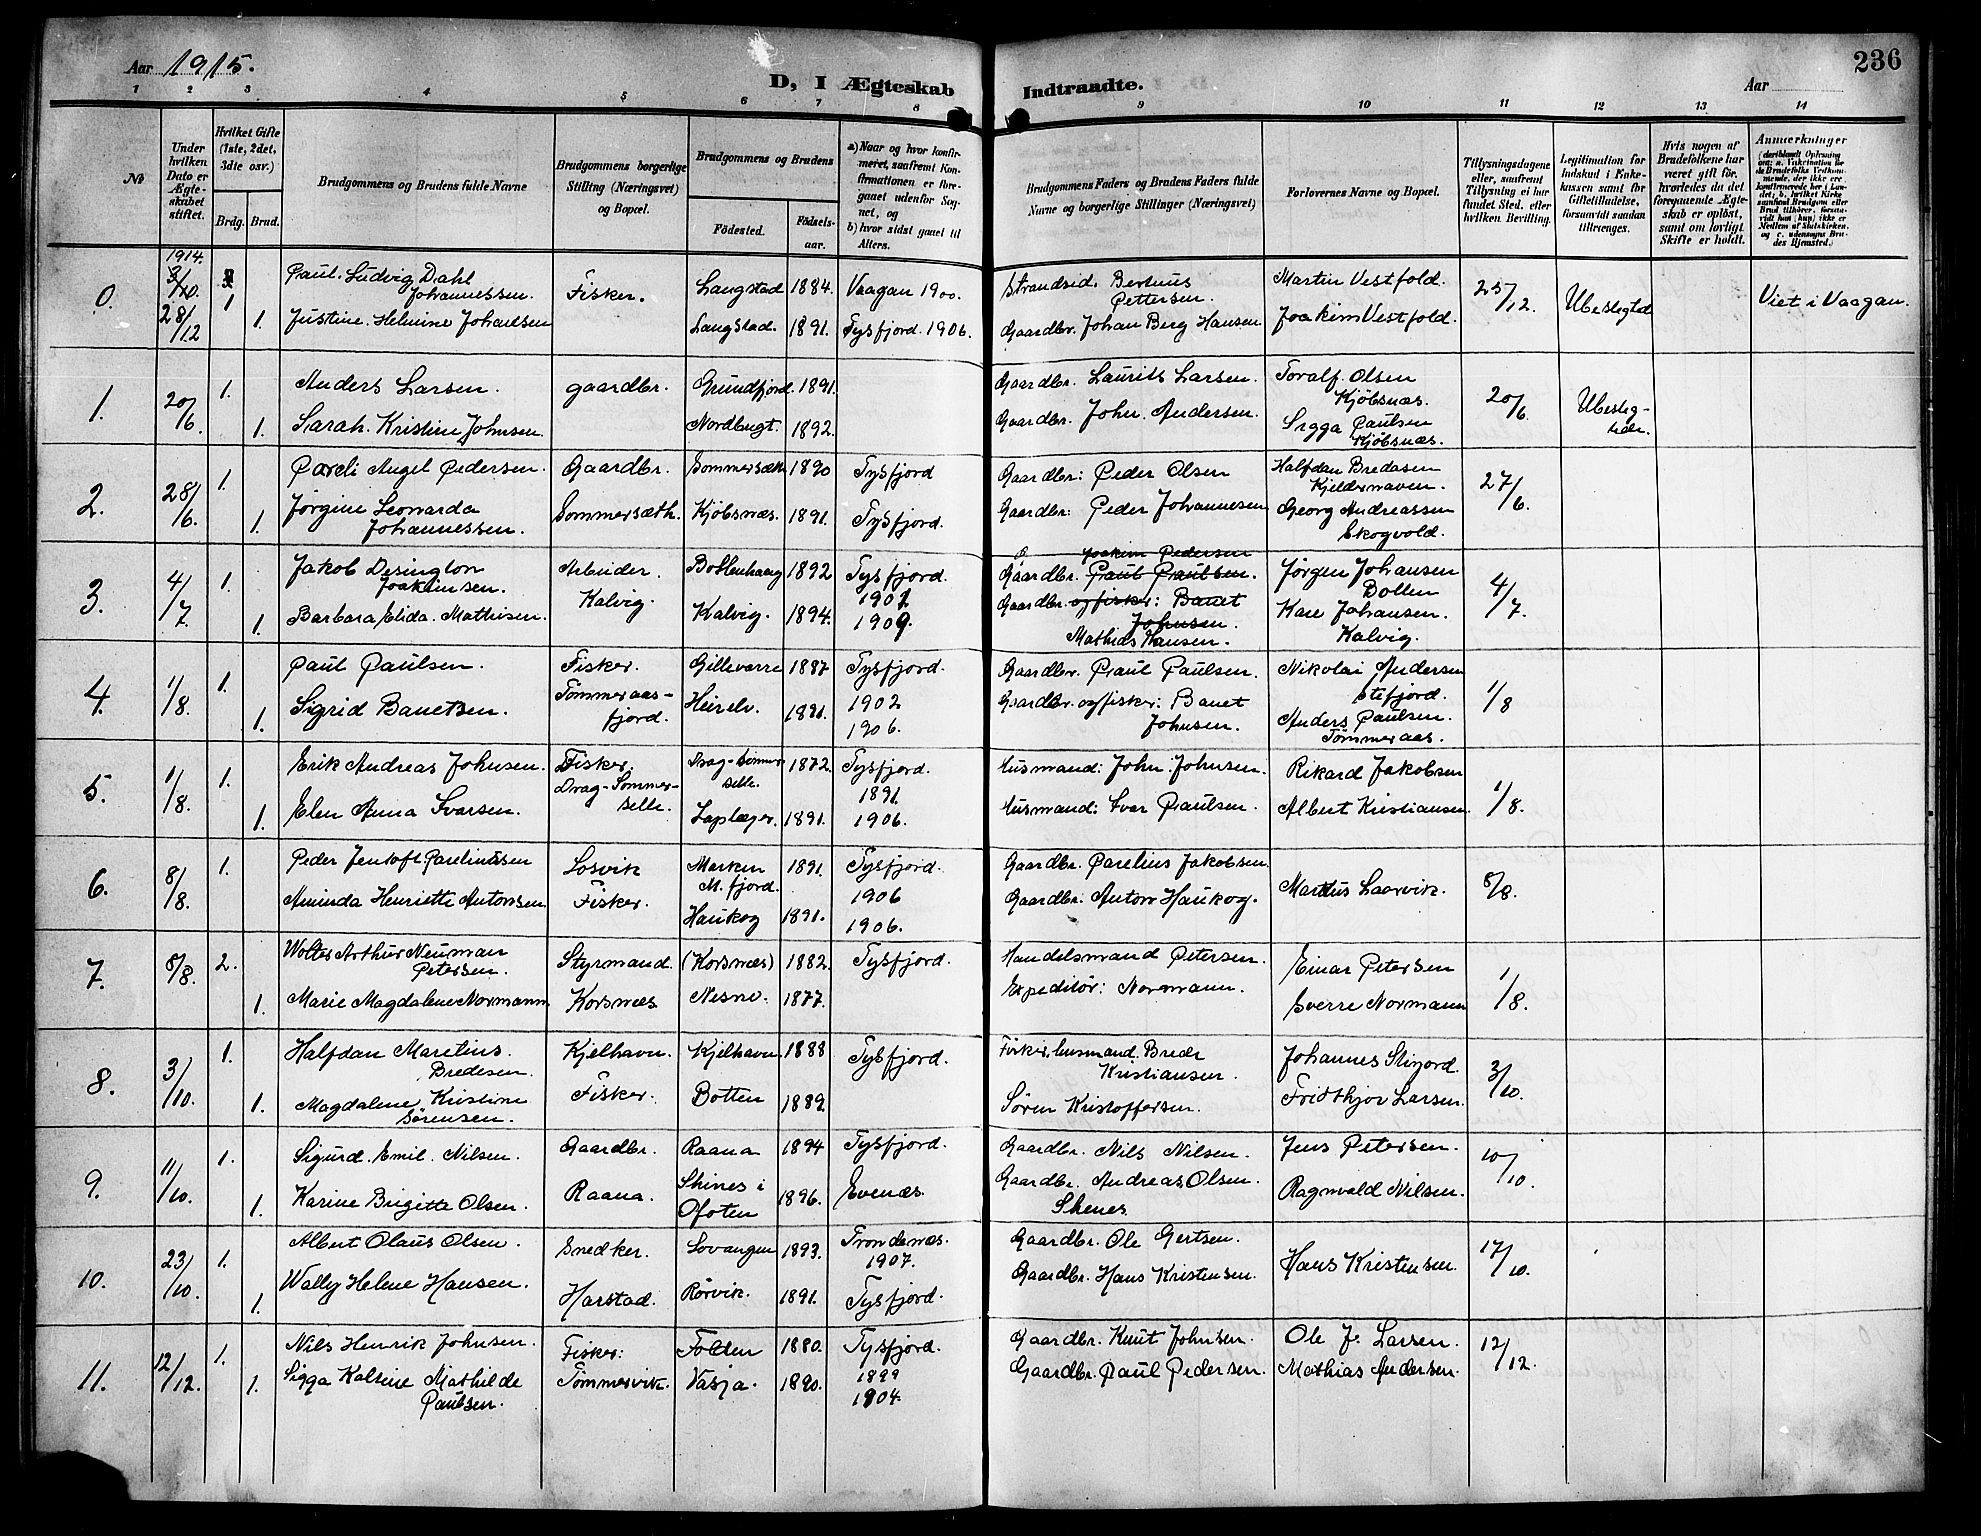 Aar 1915.
D, I Ægteskab Indtraadte.
Aar
236
1 2 3 4 5 6 7 8 9 10 11 12 13 14
No
Under hvilken Dato er Ægteskabet stiftet.
Hvilket Gifte (1ste, 2det, 3dte osv.)
Brdg. Brud.
Brudgommens og Brudens fulde Navne
Brudgommens borgerlige Stilling (Næringsvei) og Bopæl.
Brudgommens og Brudens
Födested. Födselsaar.
a) Naar og hvor konfirmeret, saafremt Konfirmationen er foregaaet udenfor Sognet, og
b) hvor sidst gaaet til Alters.
Brudgommens Faders og Brudens Faders fulde Navne og borgerlige Stillinger (Næringsvei)
Forlovernes Navne og Bopæl.
Tillysningsdagene eller, saafremt Tillysning ei har fundet Sted, efter hvilken Bevilling.
Legitimation for Indskud i Enkekassen samt for Giftetilladelse, forsaavidt saadan tiltrænges.
Hvis nogen af Brudefolkene har været gift för, hvorledes da det foregaaende Ægteskab er oplöst, samt om lovligt Skifte er holdt.
Anmærkninger
1914.
0. 3/10. 1 Paul Ludvig Dahl Johannessen. Fisker. Langstad 1884. Vaagan 1900. Strandsid. Bertnus Pettersen. Martin Vestfold. 25/12. Ubeslægtede Viet i Vaagan.
28/12 1. Justine Helmine Johansen Langstad. 1891. Tysfjord. 1906. Gaardbr. Johan Berg Hansen Joakim Vestfold.
1. 20/6. 1. Anders Larsen. gaardbr. Grundfjord. 1891. Gaardbr. Laurits Larsen. Toralf Olsen Kjöbsnæs. 20/6.
1. Sarah Kristine Johnsen. Nordbugt. 1892. Gaardbr. John Andersen. Sigga Paulsen Kjöbsnæs.
2. 28/6. 1. Pareli Angel Pedersen. Gaardbr. Sommersæth 1890 Tysfjord Gaardbr: Peder Olsen Halfdan Bredesen Kjeldernaven. 27/6.
1. Jørgine Leonarda Johannessen. Sommersæth. Kjöbsnæs. 1891. Tysfjord. Gaardbr: Peder Johannesen Georg Andreassen Skogvold.
3. 4/7 1. Jakob Desington Joakimsen. Arbeider. Bottenhaug 1892 Tysfjord. 1907 Joakim Pedersen Gaardbr. Paul Paulsen. Jørgen Johansen Botten 4/7.
1. Barbara Elida Mathisen. Kalvig. Kalvig. 1894. 1909. Gaardbr. og fisker: Banet Johnsen. Mathias Hansen. Kare Johansen. Kalvig.
4. 1/8. 1. Paul Paulsen. Fisker. Gillevarre 1887 Tysfjord. 1902 Gaardbr. Paul Paulsen. Nikolai Andersen Stefjord. 1/8
1. Sigrid Banetsen. Tömmeraasfjord. Heirelv. 1891. 1906. Gaardbr. og fisker: Banet Johnsen. Anders Paulsen. Tömmeraas.
5. 1/8. 1. Erik Andreas Johnsen. Fisker. Drag-Sommersette. 1872. Tysfjord. 1891. Husmand: John Johnsen. Rikard Jakobsen 1/8.
1. Elen Anna Ivarsen. Drag-Sommerselle. 1891. 1906. Husmand: Ivar Paulsen. Albert Kristiansen.
6. 8/8. 1. Peder Jentoft Pareliussen Losvik Marken M. fjord. 1891. Tysfjord. 1906 Gaardbr. Parelius Jakobsen. 8/8.
Aminda Henriette Antonsen Fisker. Haukøy 1891. 1906. Gaardbr: Anton Haukøy.
7. 8/8. 2. Wolter Arthur Neuman Petersen. Styrmand. (Korsnæs) 1882. Tysfjord. Handelsmand Petersen. Einar Petersen 1/8.
1. Marie Magdalene Normann Korsnæs Nesne. 1877. Expeditör: Normann. Sverre Normann
8. 3/10. 1. Halfdan Marelius Bredesen. Kjelhavn. Kjelhavn 1888 Tysfjord. Fisker, husmand. Brede Kristiansen. Johannes 3/10.
1. Magdalene Kristine Sörensen. Fisker. Botten 1889. Sören Kristoffersen. Fridthjov Larsen.
9. 11/10. 1. Sigurd Emil Nilsen. Gaardbr. Raana 1894 Tysfjord. Gaardbr. Nils Nilsen. Jens Petersen. 10/10.
1. Karine Birgitte Olsen. Raana. Skines i Ofoten 1896. Evenæs. Gaardbr. Andreas Olsen. Skenes Ragnvald Nilsen.
10. 23/10. 1. Albert Olaus Olsen. Snedker. Lovangen 1893. Trondenæs. 1907. Gaardbr. Ole Gertsen. Hans Kristensen. 17/10.
1. Wally Helene Hansen. Harstad. Rørvik. 1891. Tysfjord. Gaardbr. Hans Kristensen.
11. 12/12. 1. Nils Henrik Johnsen. Fisker: Folden 1880. Tysfjord. 1899 Gaardbr. Knut Johnsen. Ole J. Larsen. 12/12.
1. Sigga Kalsine Mathilde Paulsen. Tömmervik. Vasja. 1890. 1904. Gaardbr. Paul Pedersen. Mathias Andersen.